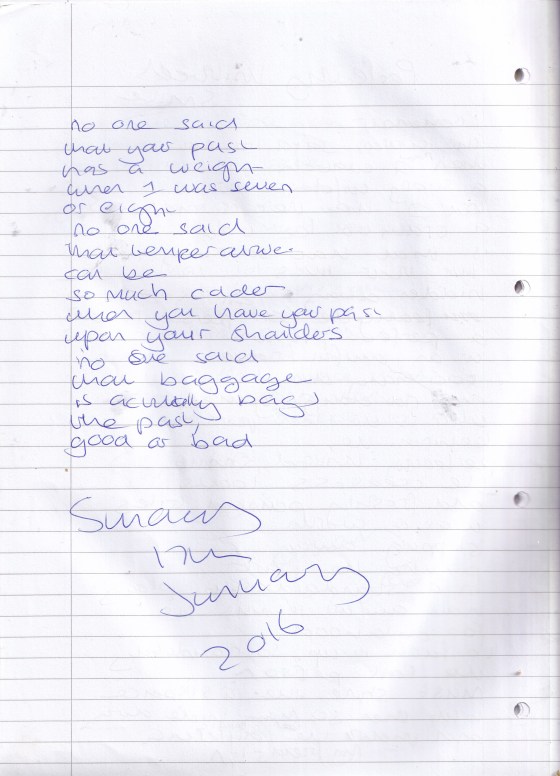 no one said
that your past
has a weight
when I was seven
or eight
no one said
that temperature
can be
so much colder
when you have your past
upon your shoulders
no one said
that baggage
is actually bags
the past,
good or bad
Sunday
17th
January
2016